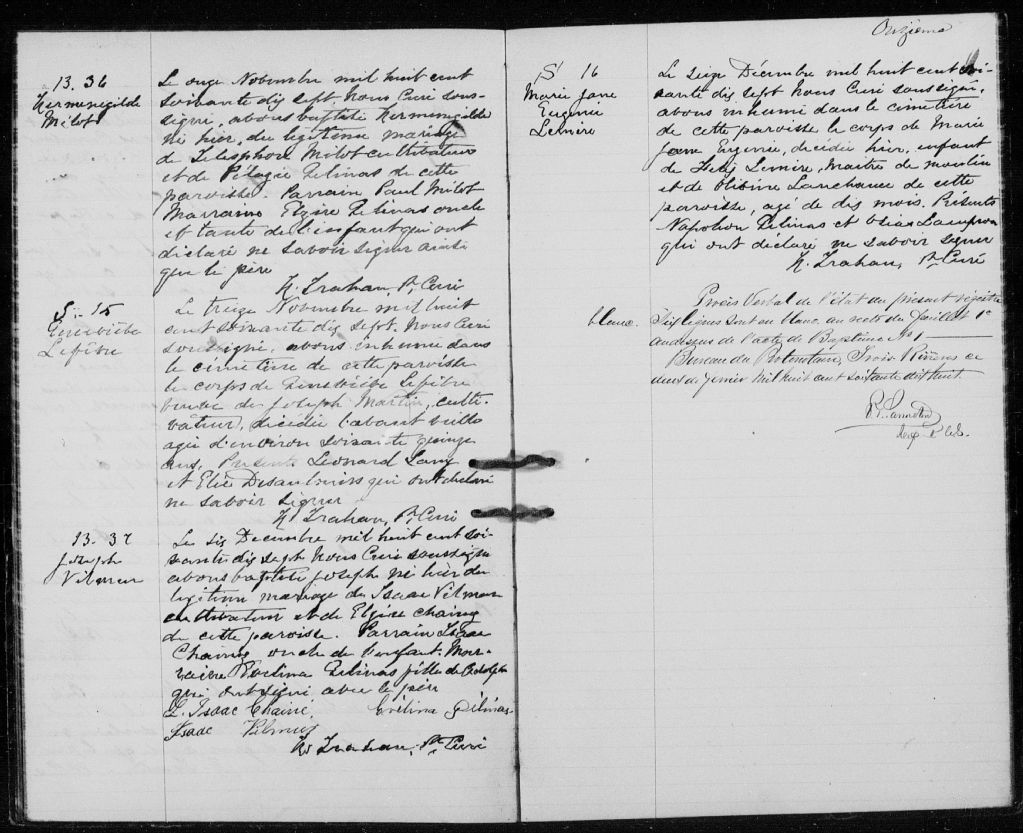 B. 36
Hermenegilde
Milot
Le onze Novembre mil huit cent
soixante dix sept, Nous Curé sous-
signé, avons baptisé Hermenegilde
né hier, du légitime mariage
de Telesphore Milot cultivateur
et de Pélagie Gelinas de cette
paroisse. Parrain Paul Milot
Marraine Elzire Gelinas oncle
et tante de l'enfant qui ont
déclaré ne savoir signer ainsi
que le père
H. Trahan, Ptre Curé
S. 15
Geneviève
Lefebvre
Le treize Novembre mil huit
cent soixante dix sept, Nous Curé
soussigné, avons inhumé dans
le cimetière de cette paroisse
le corps de Geneviève Lefebvre
veuve de Joseph Martin, culti-
vateur, décédée l'avant veille
agée d'environ soixante quinze
ans, Présents Leonard Lamy
et Elie Desaulniers qui ont déclaré
ne savoir signer
H. Trahan, Ptre Curé
B. 37
Joseph
Vilmur
Le six Decembre mil huit cent soi-
xante dix sept Nous Curé soussigné
avons baptisé Joseph né hier du
légitime mariage de Isaac Vilmur
cultivateur et de Elzire Chainé
de cette paroisse. Parrain Isaac
Chainé oncle de l'enfant. Mar-
raine Evelina Gelinas fille de Adolphe
qui ont signé avec le père
L. Isaac Chainé, Evélina Gélinas
Isaac Vilmur
H. Trahan, Ptre Curé
Onzième
S 16
Marie Jane
Eugenie
Lemire
Le seize Décembre mil huit cent soi-
xante dix sept Nous Curé soussigné,
avons inhumé dans le cimetière
de cette paroisse le corps de Marie
Jane Eugenie, décédée hier, enfant
de Lemire, Maitre de moulin
et de de cette
paroisse, agé de dix mois. Présents
Napoléon Gelinas et Lampron
qui ont déclaré ne savoir signer
H. Trahan, Ptre Curé
Procès Verbal de l'état du présent régistre
blanc. Six lignes sont en blanc au recto du feuillet 1er
audessus de l'acte de Baptême No 1
Bureau du Protonotaire, Trois Rivières ce
deux de Janvier mil huit cent soixante dix huit